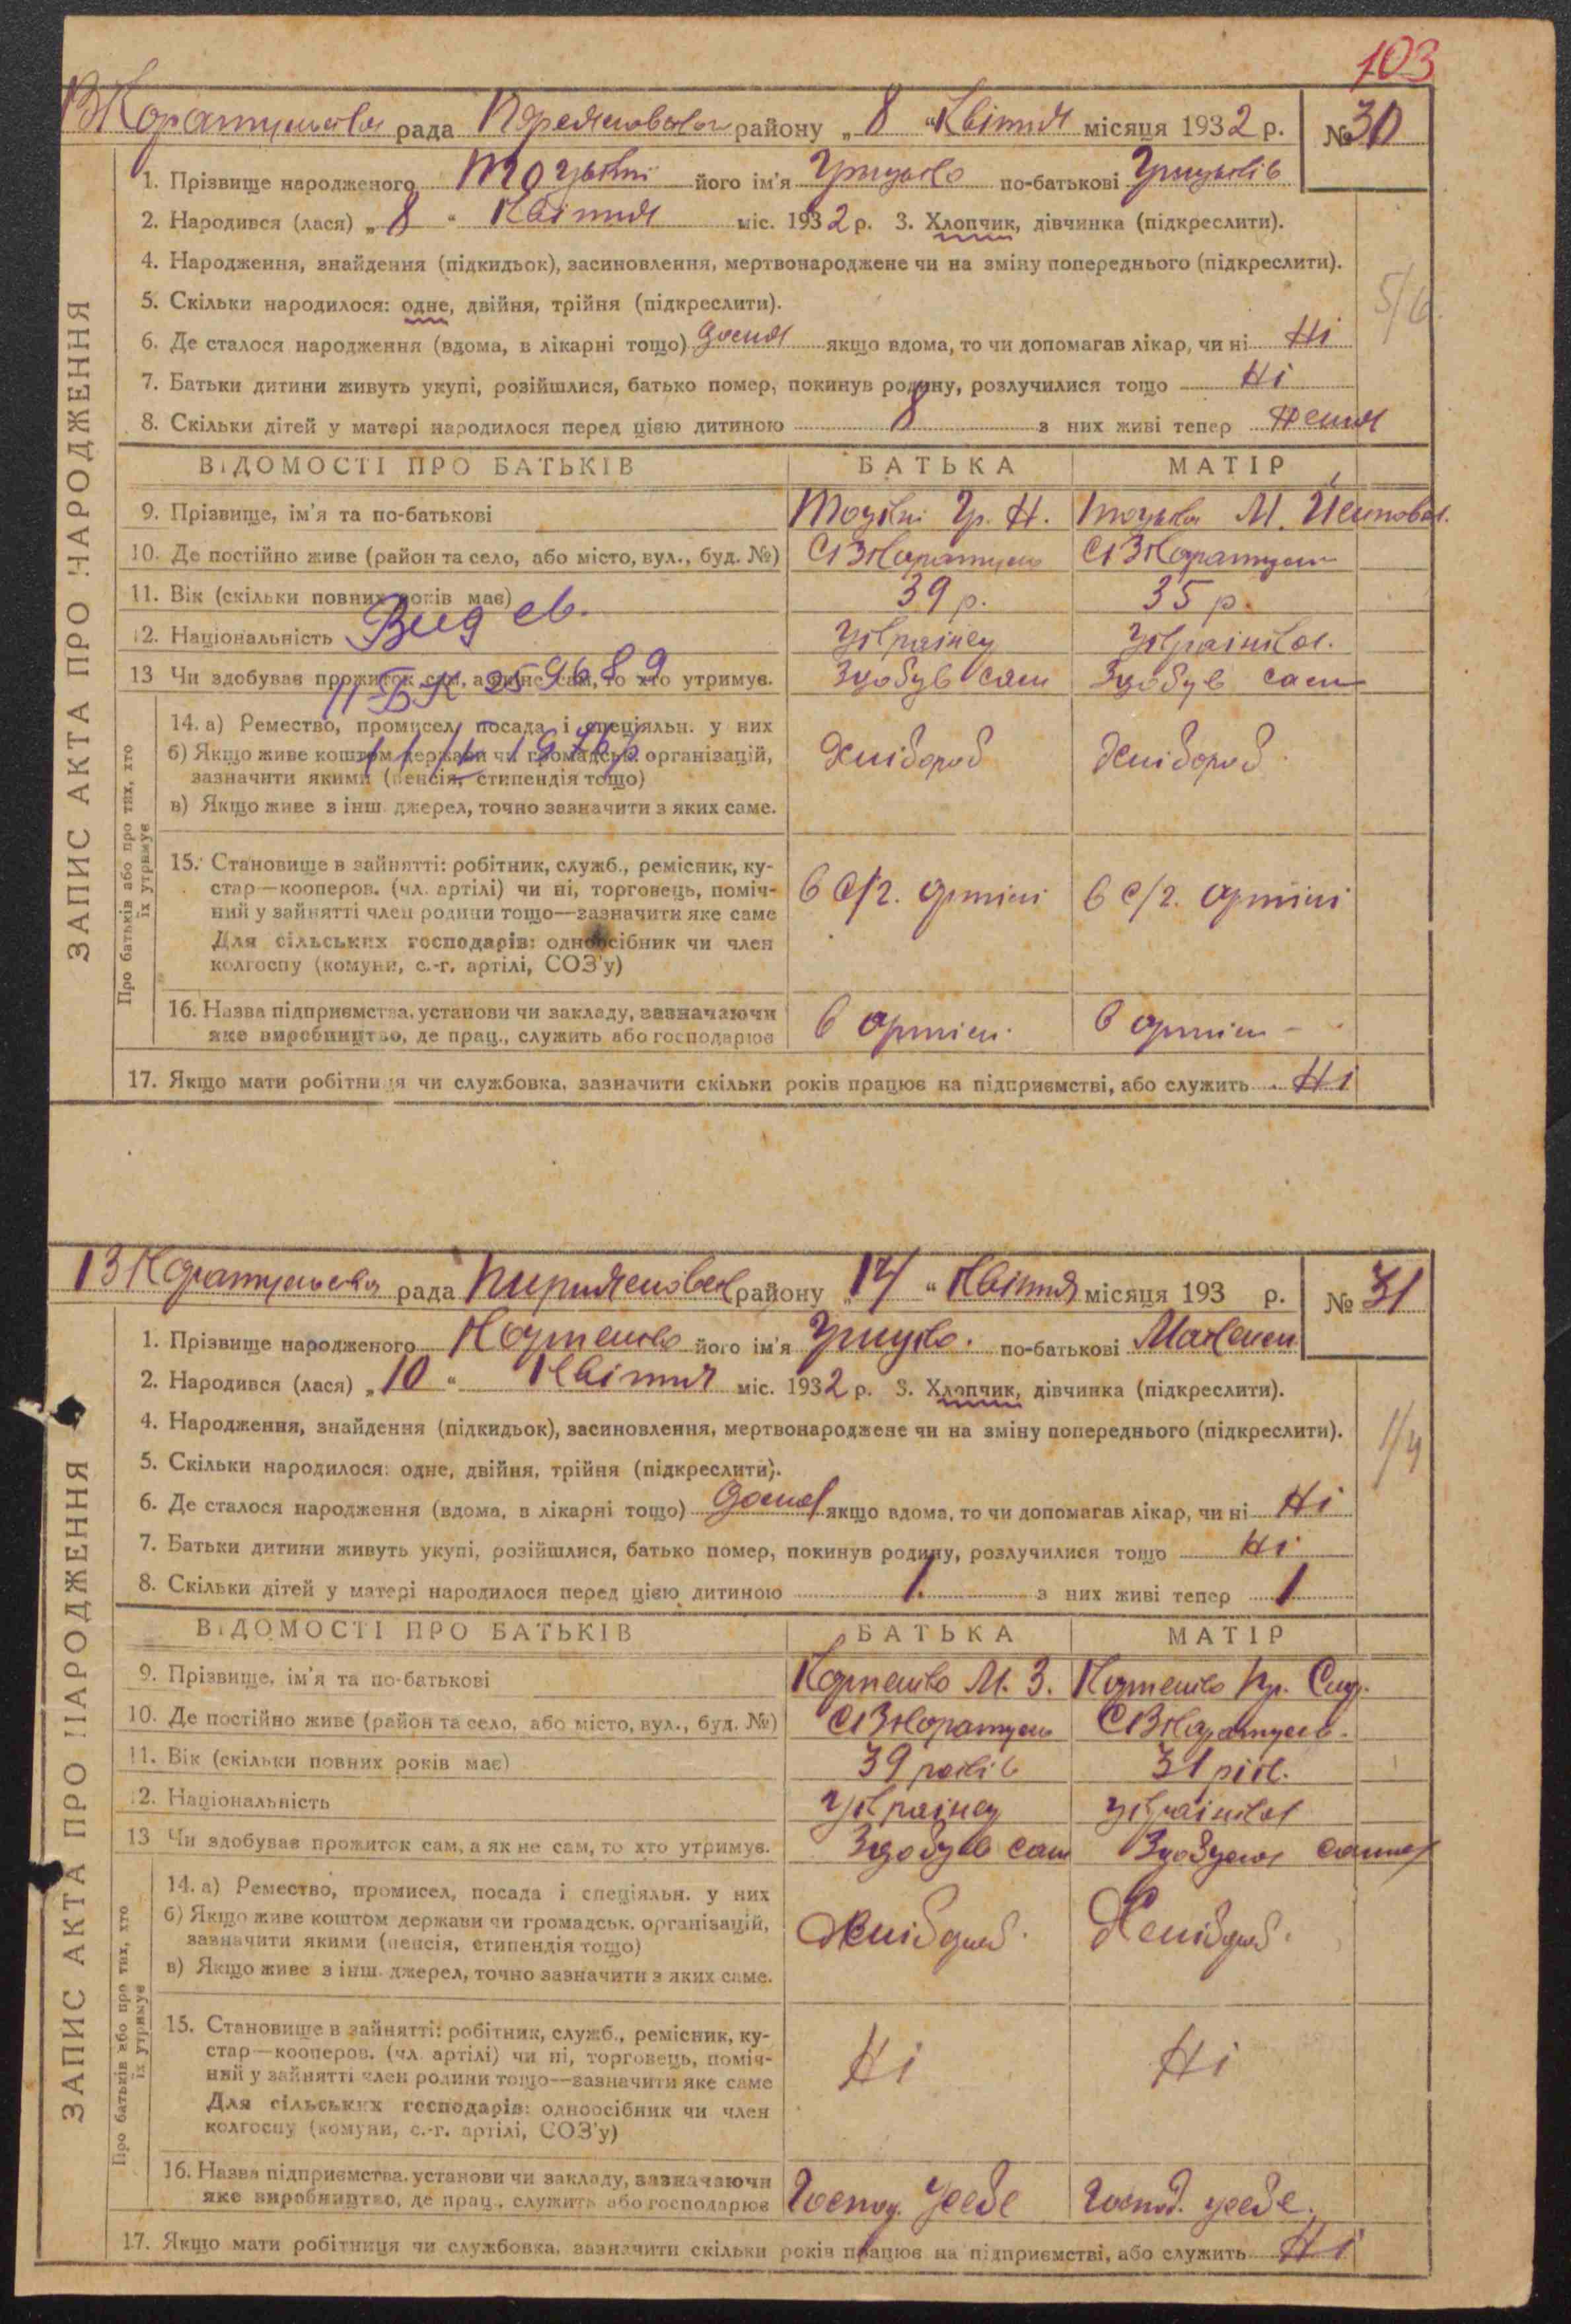 103
рада району „ 8 “ Квітня місяця 1932 р. № 30
1. Прізвище народженого його ім'я Грицько по-батькові Грицьків
2. Народився (лася) „ 8 “ Квітня міс. 1932 р. 3. Хлопчик, дівчинка (підкреслити).
4. Народження, знайдення (підкидьок), засиновлення, мертвонароджене чи на зміну попереднього (підкреслити).
5. Скільки народилося: одне, двійня, трійня (підкреслити).
5/6
6. Де сталося народження (вдома, в лікарні тощо) дома якщо вдома, то чи допомагав лікар, чи ні Ні
7. Батьки дитини живуть укупі, розійшлися, батько помер, покинув родину, розлучилися тощо Ні
8. Скільки дітей у матері народилося перед цією дитиною 8 з них живі тепер Нема
ВІДОМОСТІ ПРО БАТЬКІВ БАТЬКА МАТІР
9. Прізвище, ім'я та по-батькові Гр. Н. М.
10. Де постійно живе (район та село, або місто, вул., буд. №)
11. Вік (скільки повних років має) 39 р. 35 р.
12. Національність Українец Українка.
Вид св.
13 Чи здобував прожиток сам, а як не сам, то хто утримує. Здобув сам Здобув сам
II БК 259689
14. а) Ремество, промисел, посада і спеціяльн. у них
б) Якщо живе коштом держави чи громадськ. організацій, Хлібороб Хлібороб
зазначити якими (пенсія, стипендія тощо)
в) Якщо живе з інш. джерел, точно зазначити з яких саме.
15. Становище в зайнятті: робітник, служб., ремісник, ку-
стар—кооперов. (чл. артілі) чи ні, торговець, поміч- в с/г. артілі в с/г. артілі
ний у зайнятті член родини тощо—зазначити яке саме
Для сільських господарів: одноосібник чи член
колгоспу (комуни, с.-г. артілі, СОЗ'у)
16. Назва підприємства, установи чи закладу, зазначаючи
яке виробництво, де прац., служить або господарює в артілі. в артілі
17. Якщо мати робітниця чи службовка, зазначити скільки років працює на підприємстві, або служить Ні
ЗАПИС АКТА ПРО НАРОДЖЕННЯ
Про батьків або про тих, хто
їх утримує
рада району „ 14 “ Квітня місяця 193 р. № 31
1. Прізвище народженого його ім'я Грицько. по-батькові
2. Народився (лася) „ 10 “ Квітня міс. 1932 р. 3. Хлопчик, дівчинка (підкреслити).
4. Народження, знайдення (підкидьок), засиновлення, мертвонароджене чи на зміну попереднього (підкреслити).
1/4
5. Скільки народилося: одне, двійня, трійня (підкреслити).
6. Де сталося народження (вдома, в лікарні тощо) дома якщо вдома, то чи допомагав лікар, чи ні Ні
7. Батьки дитини живуть укупі, розійшлися, батько помер, покинув родину, розлучилися тощо Ні
8. Скільки дітей у матері народилося перед цією дитиною 1. з них живі тепер 1
ВІДОМОСТІ ПРО БАТЬКІВ БАТЬКА МАТІР
9. Прізвище, ім'я та по-батькові М. З.
10. Де постійно живе (район та село, або місто, вул., буд. №)
11. Вік (скільки повних років має) 39 років 31 рік.
12. Національність Українец Українка
13 Чи здобував прожиток сам, а як не сам, то хто утримує. Здобув сам сама
14. а) Ремество, промисел, посада і спеціяльн. у них
б) Якщо живе коштом держави чи громадськ. організацій, Хлібороб. Хлібороб.
зазначити якими (пенсія, стипендія тощо)
в) Якщо живе з інш. джерел, точно зазначити з яких саме.
15. Становище в зайнятті: робітник, служб., ремісник, ку-
стар—кооперов. (чл. артілі) чи ні, торговець, поміч- Ні Ні
ний у зайнятті член родини тощо—зазначити яке саме
Для сільських господарів: одноосібник чи член
колгоспу (комуни, с.-г. артілі, СОЗ'у)
16. Назва підприємства, установи чи закладу, зазначаючи
яке виробництво, де прац., служить або господарює Господ. усебе Господ. усебе.
17. Якщо мати робітниця чи службовка, зазначити скільки років працює на підприємстві, або служить Ні
ЗАПИС АКТА ПРО НАРОДЖЕННЯ
Про батьків або про тих, хто
їх утримує